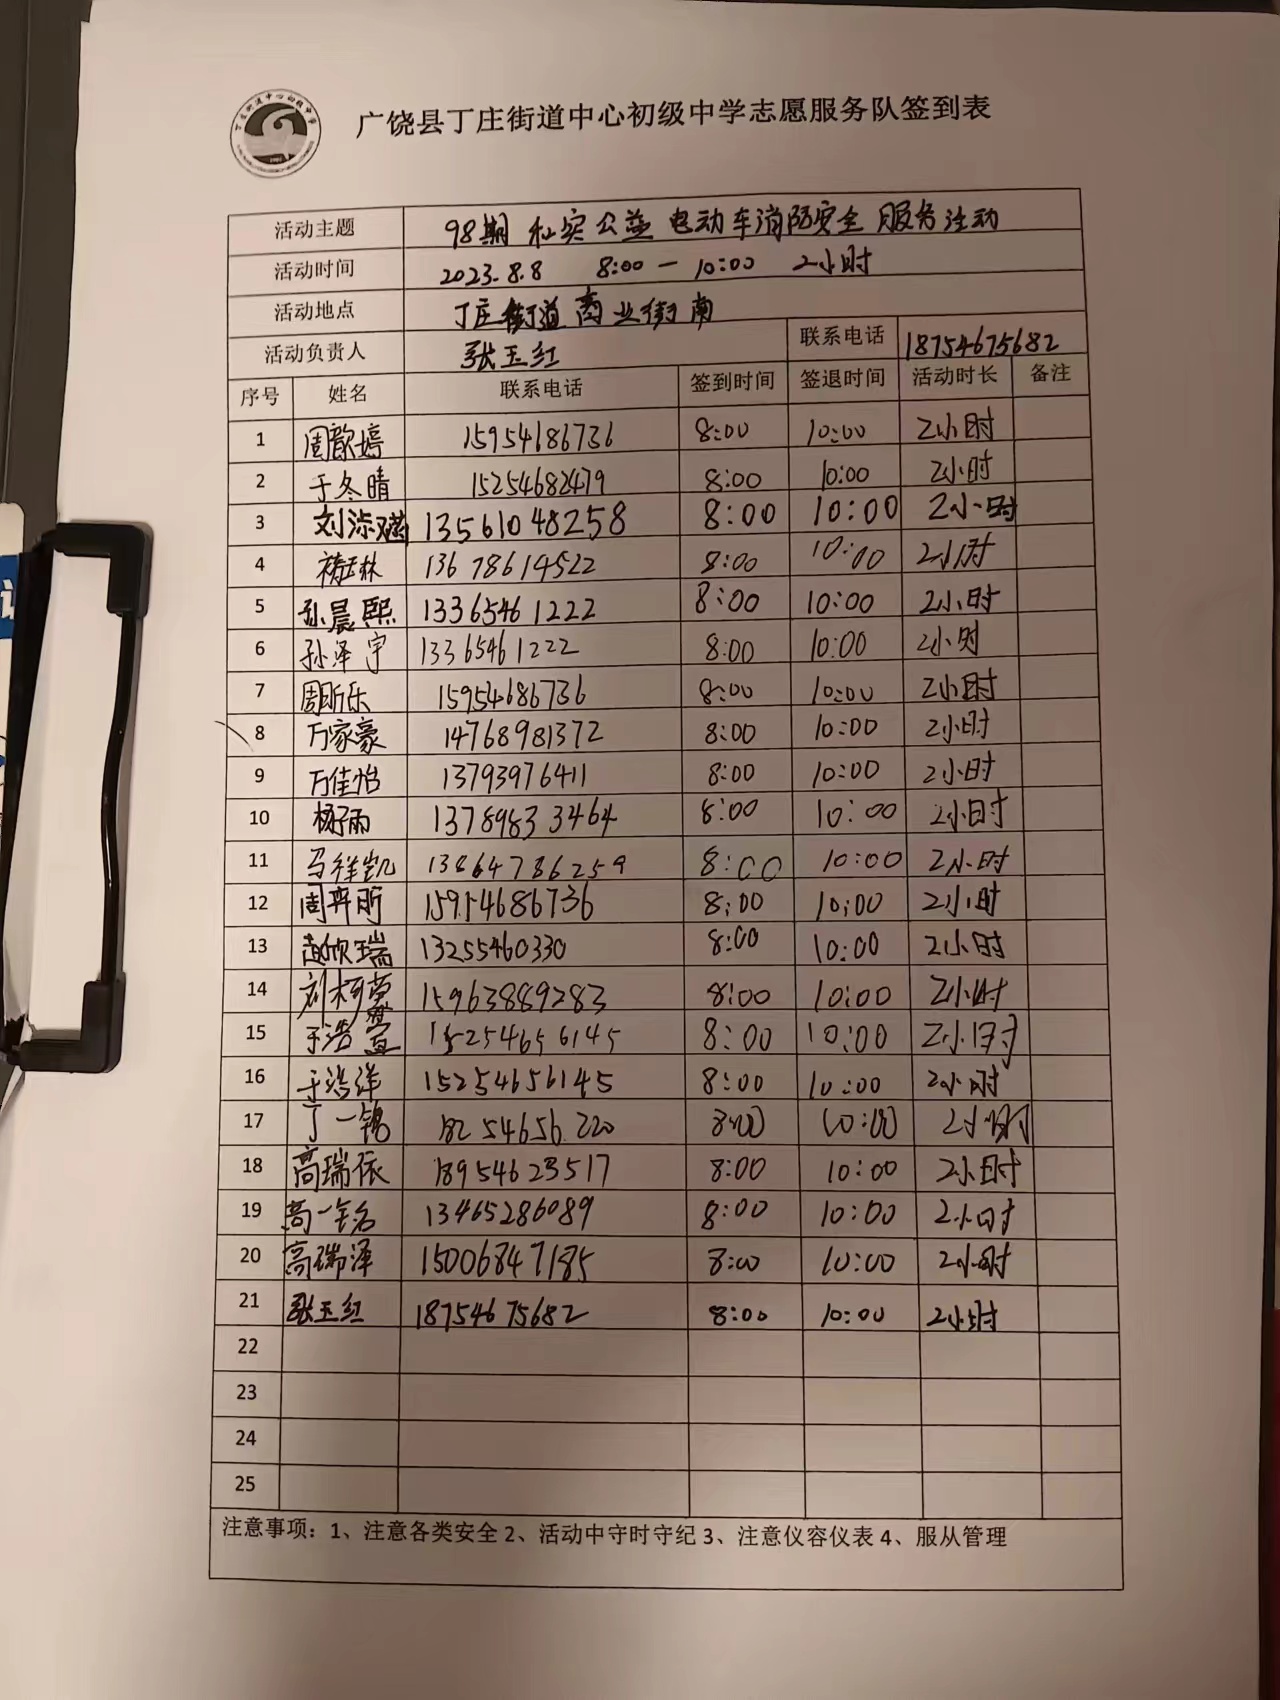 广饶县丁庄街道中心初级中学志愿服务队签到表
活动主题 98期 公益 电动车消防安全 服务活动
活动时间 2023.8.8 8:00 — 10:00 2小时
活动地点 丁庄街道商业街南
活动负责人 张玉红 联系电话 18754675682
序号 姓名 联系电话 签到时间 签退时间 活动时长 备注
1 周歆婷 15954686736 8:00 10:00 2小时
2 于冬晴 15254682479 8:00 10:00 2小时
3 13561048258 8:00 10:00 2小时
4 13678614522 8:00 10:00 2小时
5 孙晨熙 13365461222 8:00 10:00 2小时
6 孙泽宇 13365461222 8:00 10:00 2小时
7 周昕乐 15954686736 8:00 10:00 2小时
8 万家豪 14768981372 8:00 10:00 2小时
9 万佳怡 13793976411 8:00 10:00 2小时
10 杨子雨 13789833464 8:00 10:00 2小时
11 马祥凯 13864786259 8:00 10:00 2小时
12 周弈昕 15954686736 8:00 10:00 2小时
13 赵欣瑞 13255460330 8:00 10:00 2小时
14 15963889283 8:00 10:00 2小时
15 于浩萱 15254656145 8:00 10:00 2小时
16 于浩洋 15254656145 8:00 10:00 2小时
17 丁一铭 18254656220 8:00 10:00 2小时
18 高瑞依 18954623517 8:00 10:00 2小时
19 高一铭 13465286089 8:00 10:00 2小时
20 高瑞泽 15006847185 8:00 10:00 2小时
21 张玉红 18754675682 8:00 10:00 2小时
22
23
24
25
注意事项：1、注意各类安全 2、活动中守时守纪 3、注意仪容仪表 4、服从管理